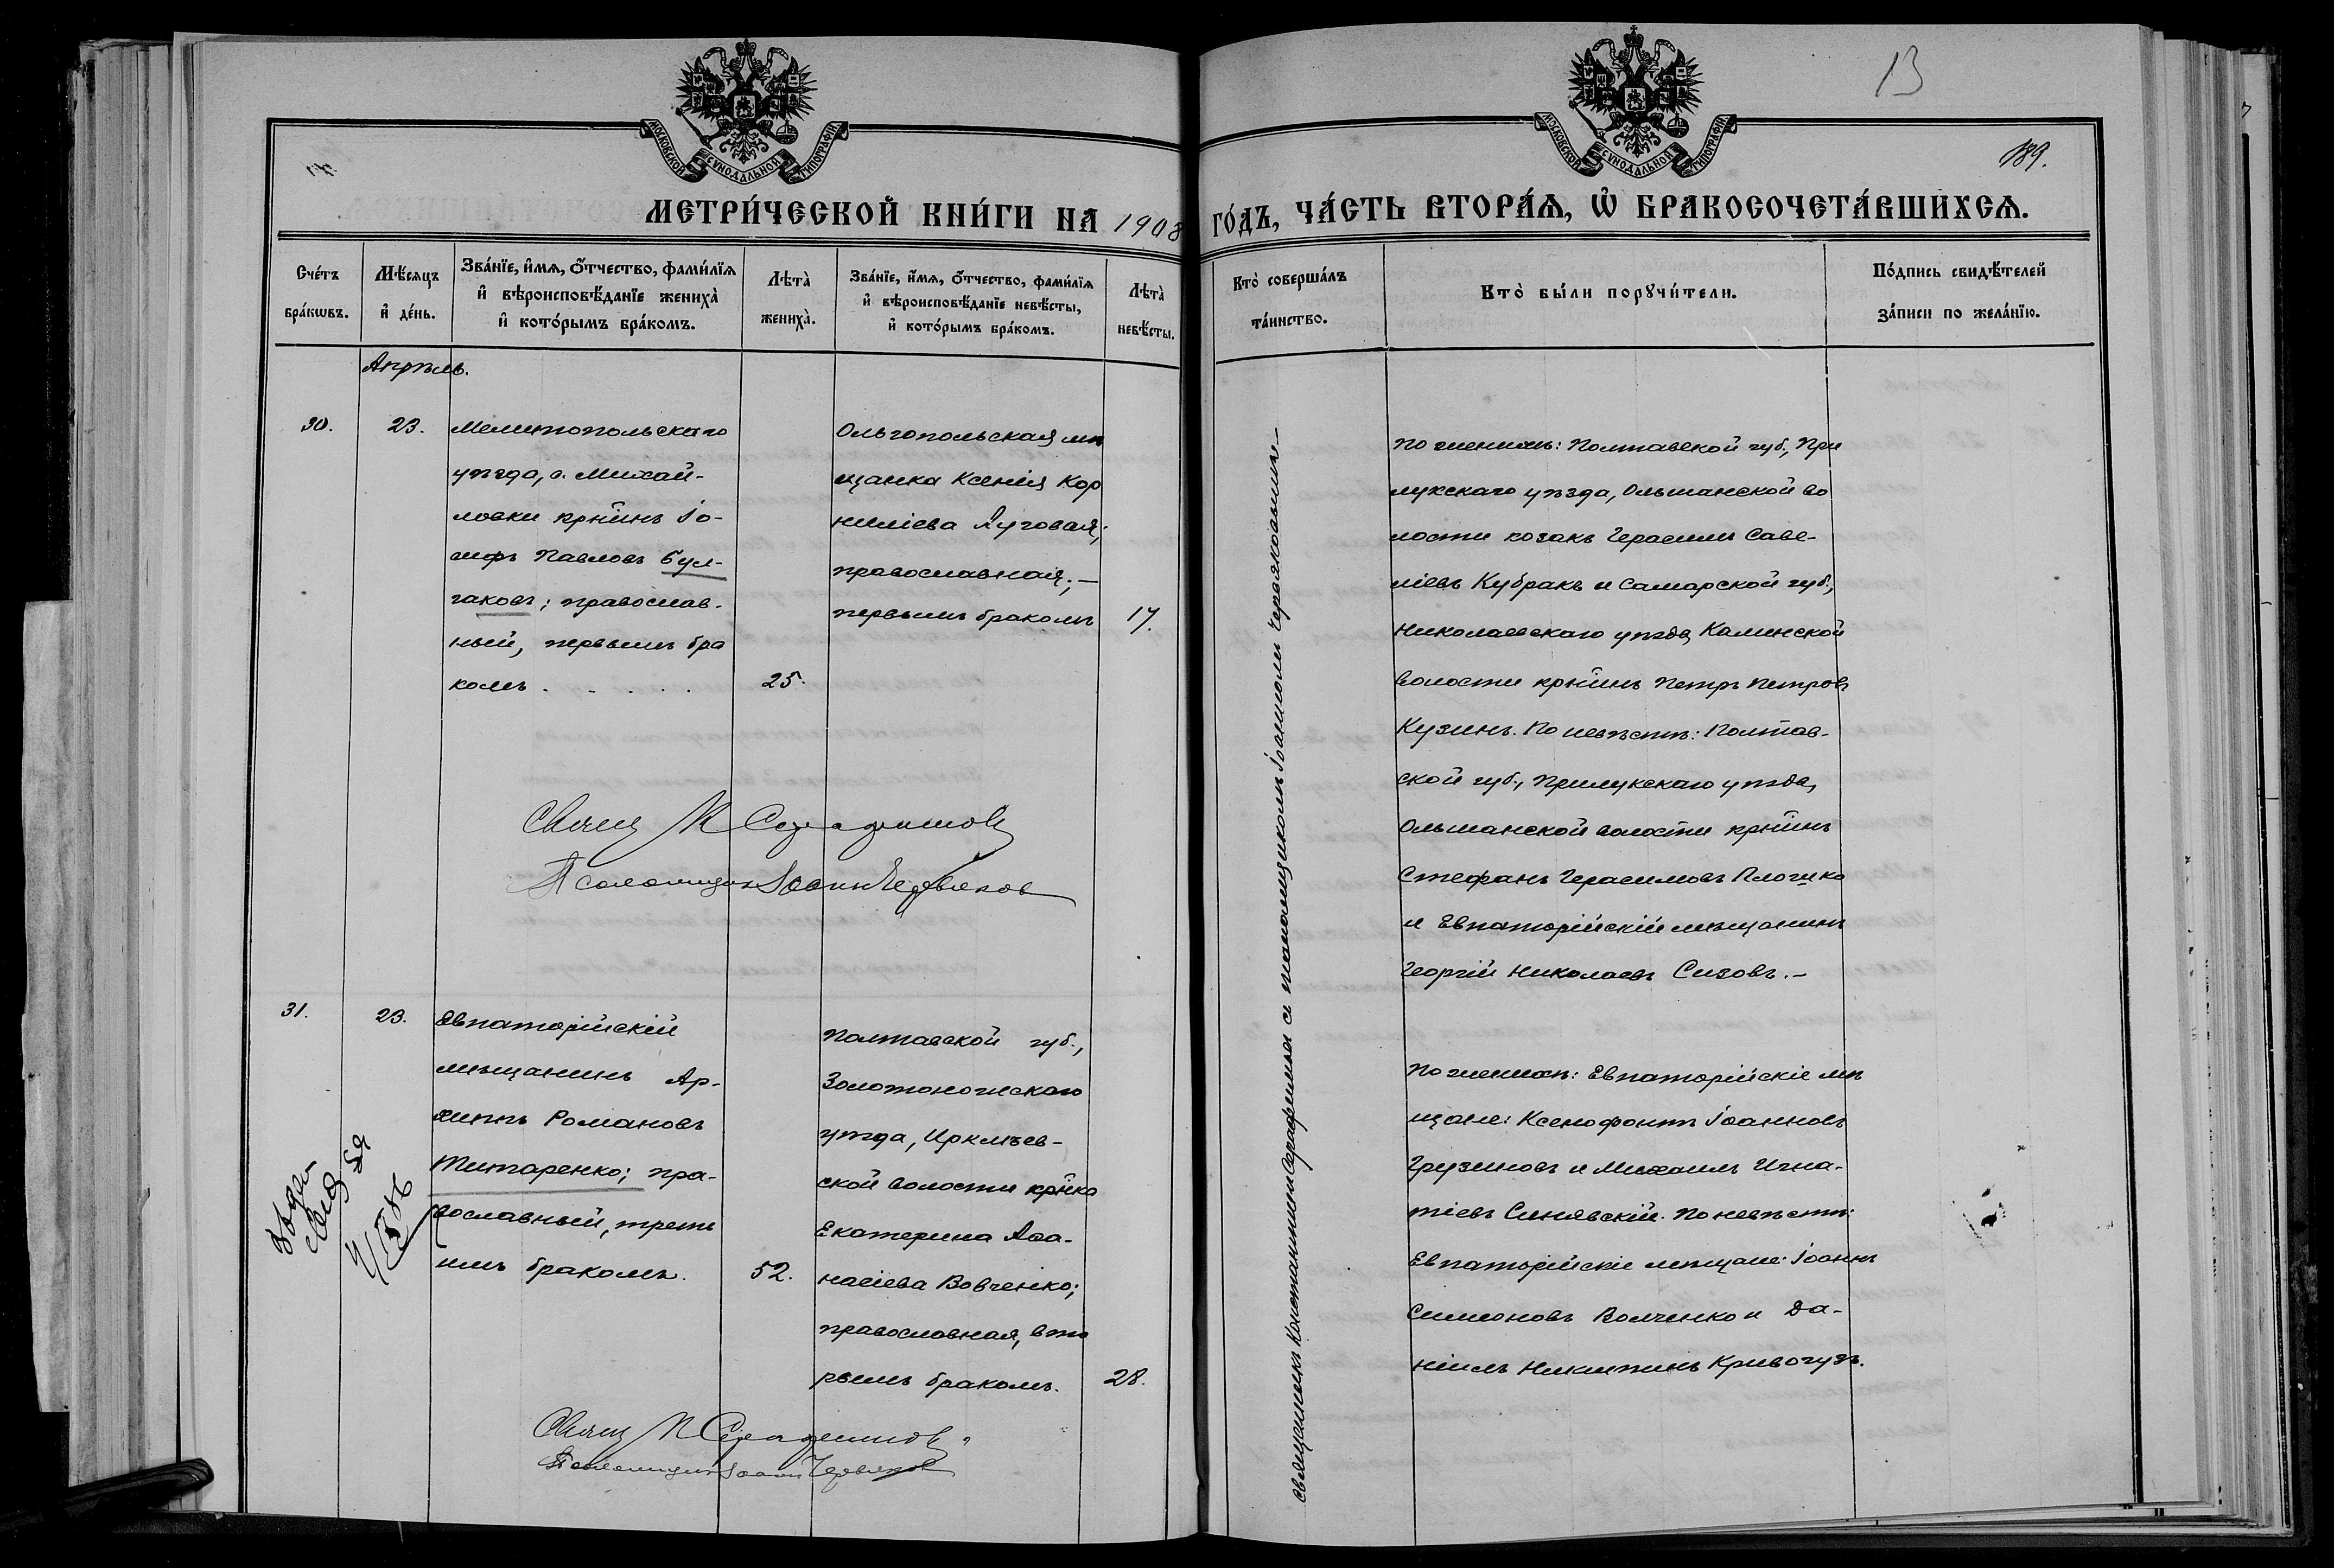 13
189.
МОСКОВСКОЙ СѴНОДАЛЬНОЙ ТИПОГРАФІИ
МОСКОВСКОЙ СѴНОДАЛЬНОЙ ТИПОГРАФІИ
МЕТРИ́ЧЕСКОЙ КНИ́ГИ НА 1908 ГО́ДЪ, ЧА́СТЬ ВТОРА́Ѧ, Ѡ҆ БРАКОСОЧЕТА́ВШИХСѦ.
Сче́тъ бра́кѡвъ.
Мѣ́сѧцъ и҆ де́нь.
Зва́нїе, и҆́мѧ, ѻ҆́тчество, фами́лїѧ
и҆ вѣроисповѣ́данїе жениха̀
и҆ кото́рымъ бра́комъ.
Лѣта̀ жениха̀.
Зва́нїе, и҆́мѧ, ѻ҆́тчество, фами́лїѧ
и҆ вѣроисповѣ́данїе невѣ́сты,
и҆ кото́рымъ бра́комъ.
Лѣта̀ невѣ́сты.
Кто̀ соверша́лъ та́инство.
Кто̀ бы́ли порꙋчи́тели.
По́дпись свидѣ́телей
за́писи по жела́нїю.
Апрѣль.
30.
23.
Мелитопольскаго
уѣзда, с. Михай-
ловки крнинъ Іо-
сифъ Павловъ Бул-
гаковъ; православ-
ный, первымъ бра
комъ . . . . .
25.
Ольгопольская мѣ
щанка Ксенія Кор
ниліева Луговая;
православная; —
первымъ бракомъ
17.
Священникъ Константинъ Серафимовъ съ псаломщикомъ Іоанномъ Червяковымъ.—
По женихѣ: Полтавской губ., При
лукскаго уѣзда, Ольшанской во
лости козакъ Герасимъ Саве-
ліевъ Кубракъ и Самарской губ.,
Николаевскаго уѣзда, Каменской
волости крнинъ Петръ Петровъ
Кузинъ. По невѣстѣ: Полтав-
ской губ., Прилукскаго уѣзда,
Ольшанской волости крнинъ
Стефанъ Герасимовъ Плошко
и Евпаторійскій мѣщанинъ
Георгій Николаевъ Сизовъ.—
Свящ К Серафимовъ
Псаломщикъ Іоаннъ Червяковъ
31.
23.
Евпаторійскій
мѣщанинъ Ар-
хиппъ Романовъ
Титаренко; пра-
вославный, треть
имъ бракомъ.
52.
Полтавской губ.,
Золотоношскаго
уѣзда, Ирклѣев-
ской волости крнка
Екатерина Аѳа-
насіева Вовченко;
православная, вто
рымъ бракомъ.
28.
По женихѣ: Евпаторійскіе мѣ
щане: Ксенофонтъ Іоанновъ
Грузиновъ и Михаилъ Игна-
тіевъ Синявскій. По невѣстѣ:
Евпаторійскіе мѣщане: Іоаннъ
Симеоновъ Волченко и Да-
ніилъ Никитинъ Кривогузъ.
Свящ К Серафимовъ
Псаломщикъ Іоаннъ Червяковъ